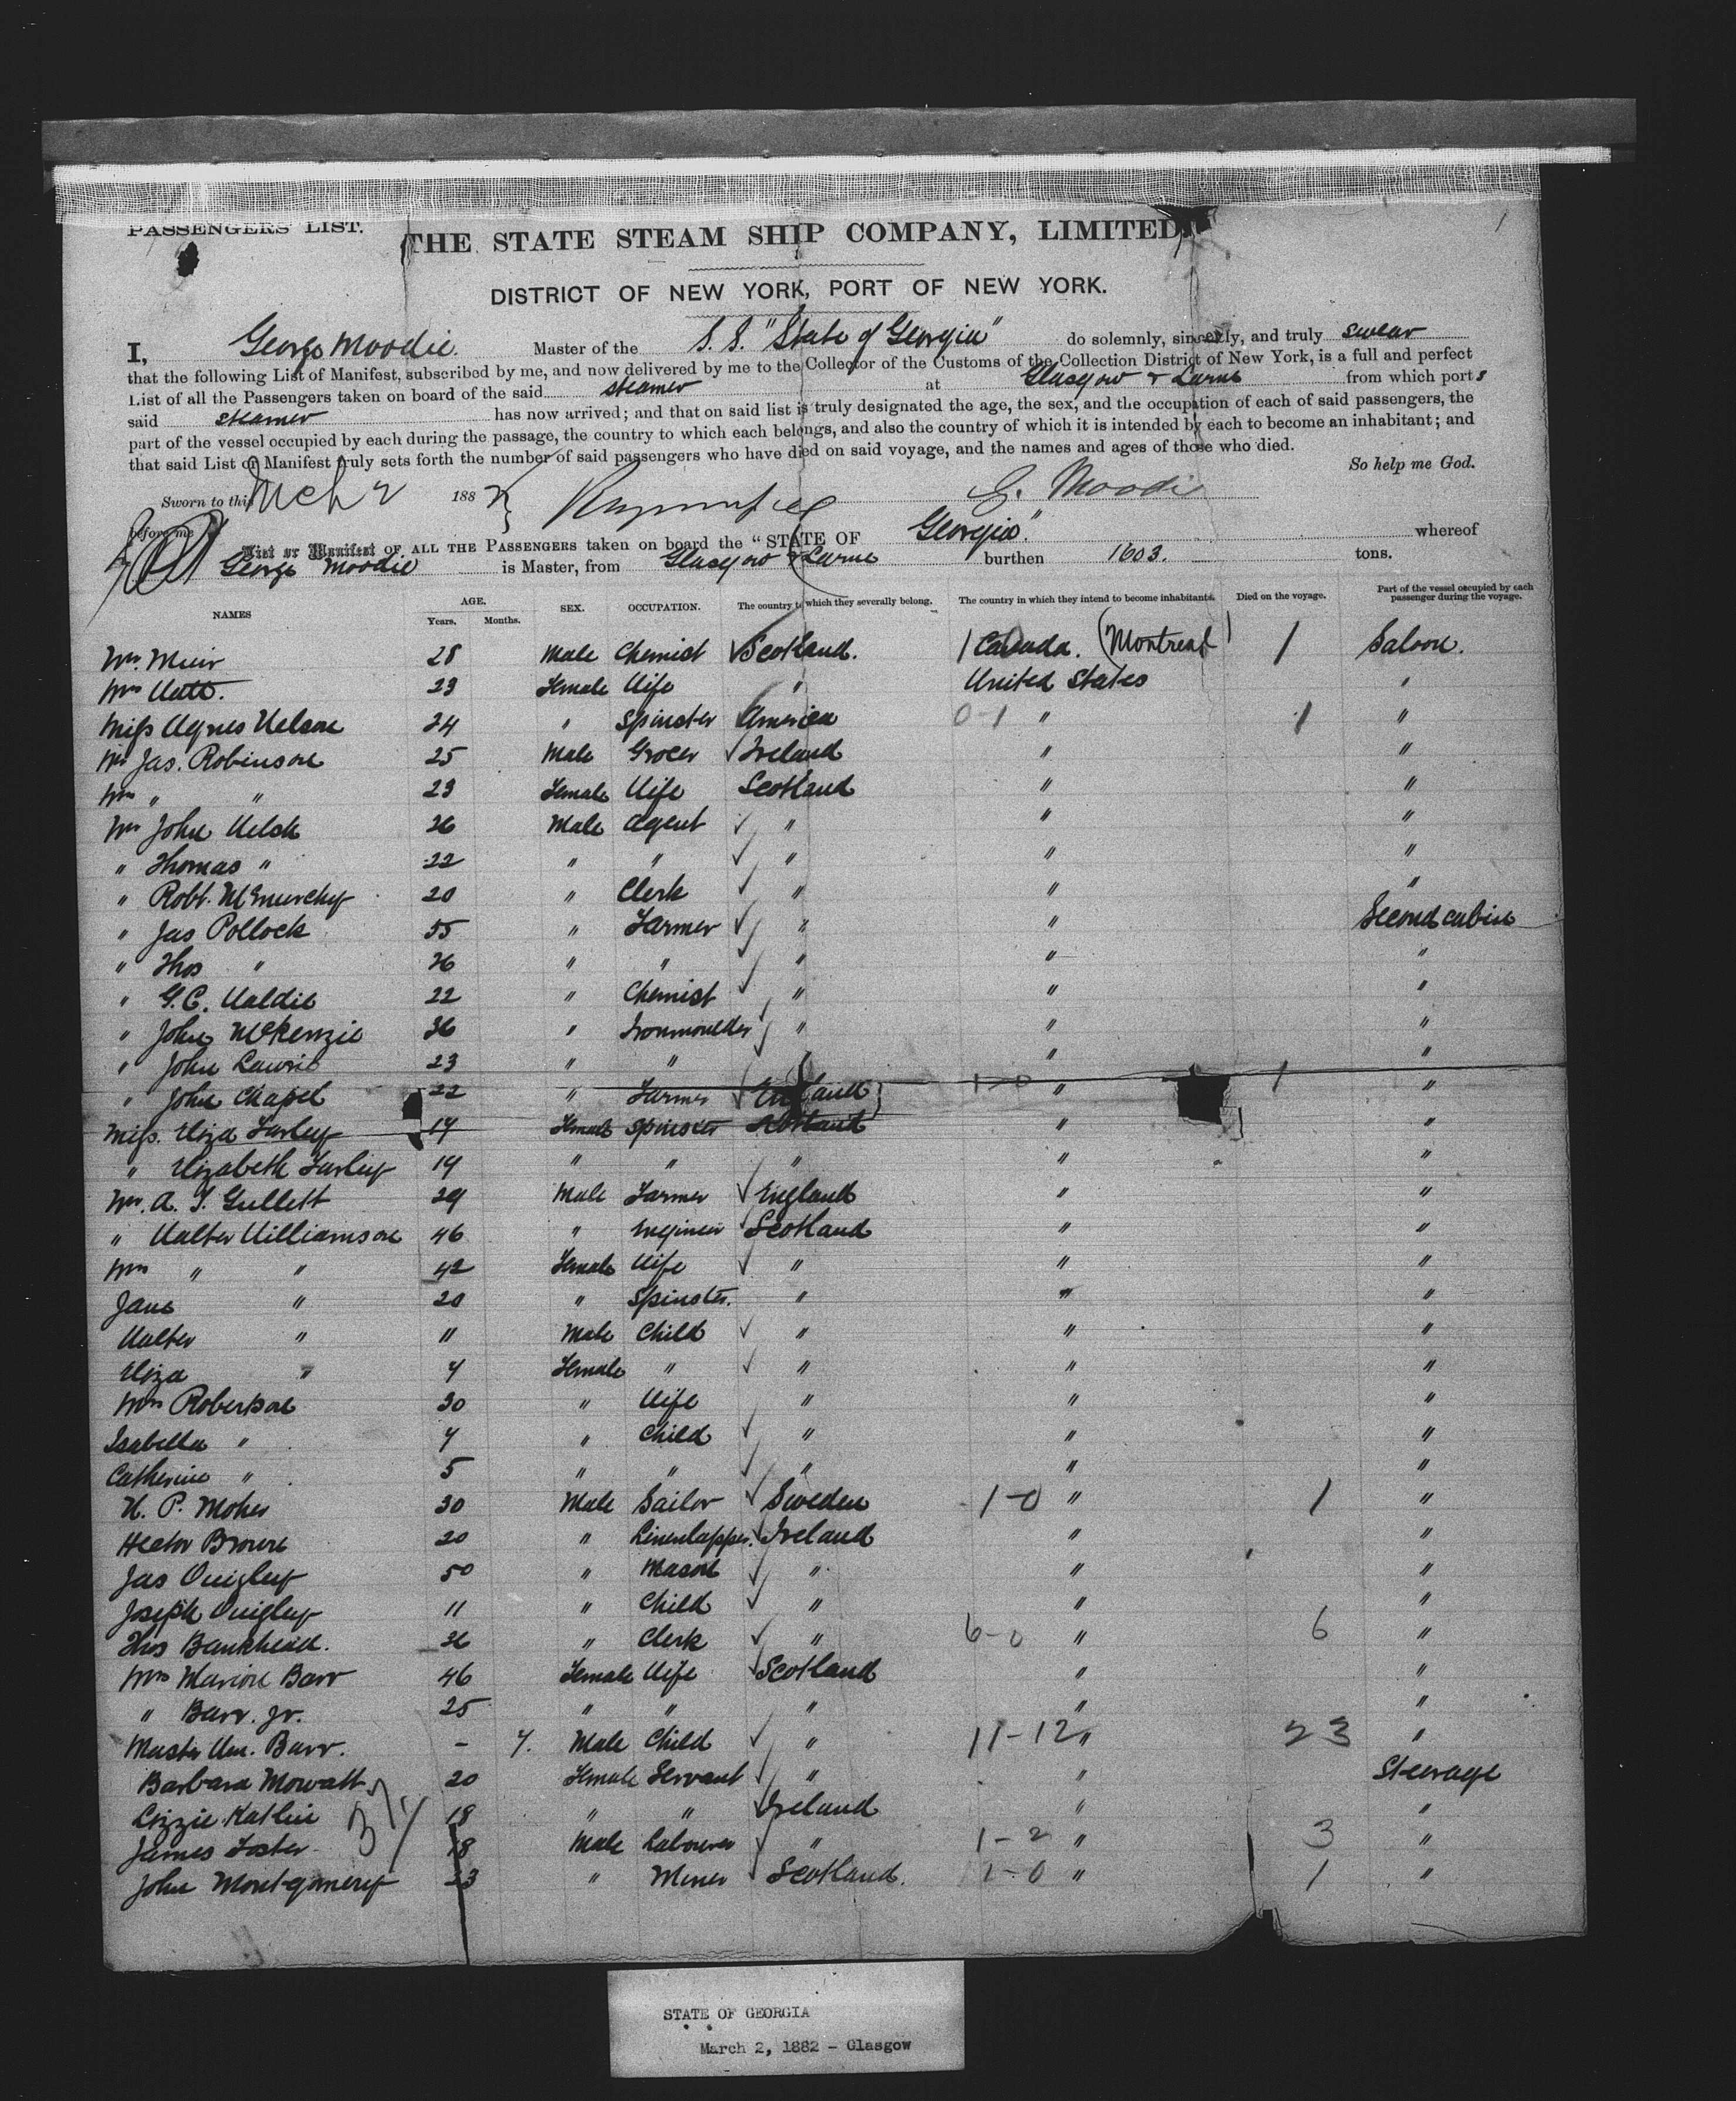 PASSENGERS' LIST.
1
THE STATE STEAM SHIP COMPANY, LIMITED.
DISTRICT OF NEW YORK, PORT OF NEW YORK.
I, George Moodie. Master of the S. S. "State of Georgia" do solemnly, sincerely, and truly swear
that the following List of Manifest, subscribed by me, and now delivered by me to the Collector of the Customs of the Collection District of New York, is a full and perfect
List of all the Passengers taken on board of the said steamer at Glasgow & Larne from which ports
said steamer has now arrived; and that on said list is truly designated the age, the sex, and the occupation of each of said passengers, the
part of the vessel occupied by each during the passage, the country to which each belongs, and also the country of which it is intended by each to become an inhabitant; and
that said List or Manifest truly sets forth the number of said passengers who have died on said voyage, and the names and ages of those who died.
So help me God.
Sworn to this Mch 2 1882 G. Moodie
before me
List or Manifest OF ALL THE PASSENGERS taken on board the "STATE OF Georgia" whereof
George Moodie is Master, from Glasgow & Larne burthen 1603. tons.
NAMES AGE. Years. Months. SEX. OCCUPATION. The country to which they severally belong. The country in which they intend to become inhabitants. Died on the voyage. Part of the vessel occupied by each passenger during the voyage.
Mr. Muir 28 Male Chemist Scotland. 1 Canada. (Montreal) 1 Saloon.
Mrs Watt. 23 Female Wife " United States "
Miss Agnes Nelson 24 " Spinster America 0-1 " 1 "
Mr Jas. Robinson 25 Male Grocer Ireland " "
Mrs " " 23 Female Wife Scotland " "
Mr John Welsh 26 Male Agent " " "
" Thomas " 22 " " " " "
" Robt. McMurchy 20 " Clerk " " "
" Jas Pollock 55 " Farmer " " Second cabin
" Thos " 26 " " " " "
" G. C. Waldie 22 " Chemist " " "
" John McKenzie 36 " Ironmoulder " " "
" John Lawrie 23 " " " "
" John Chapel 22 " Farmer England 1-0 " 1 "
Miss. Eliza Farley 17 Female Spinster Scotland " "
" Elizabeth Farley 19 " " " " "
Mr. A. T. Gullett 29 Male Farmer England " "
" Walter Williamson 46 " Engineer Scotland " "
Mrs " " 42 Female Wife " " "
Jane " 20 " Spinster. " " "
Walter " 11 Male Child " " "
Eliza " 7 Female " " " "
Mrs Robertson 30 " Wife " " "
Isabella " 7 " Child " " "
Catherine " 5 " " " " "
N. P. Moher 30 Male Sailor Sweden 1-0 " 1 "
Hector Brown 20 " Linenlapper. Ireland " "
Jas Quigley 50 " Mason " " "
Joseph Quigley 11 " Child " " "
Thos Bankhead. 36 " Clerk " 6-0 " 6 "
Mrs Marion Barr 46 Female Wife Scotland " "
" Barr. Jr. 25 " " " " "
Master Wm. Barr. - 7. Male Child " 11-12 " 23 "
Barbara Mowatt 20 Female Servant " " Steerage
Lizzie 18 " " Ireland " "
James Foster 18 Male Labourer " 1-2 " 3 "
John Montgomery 23 " Miner Scotland. 1-0 " 1 "
STATE OF GEORGIA
March 2, 1882 - Glasgow